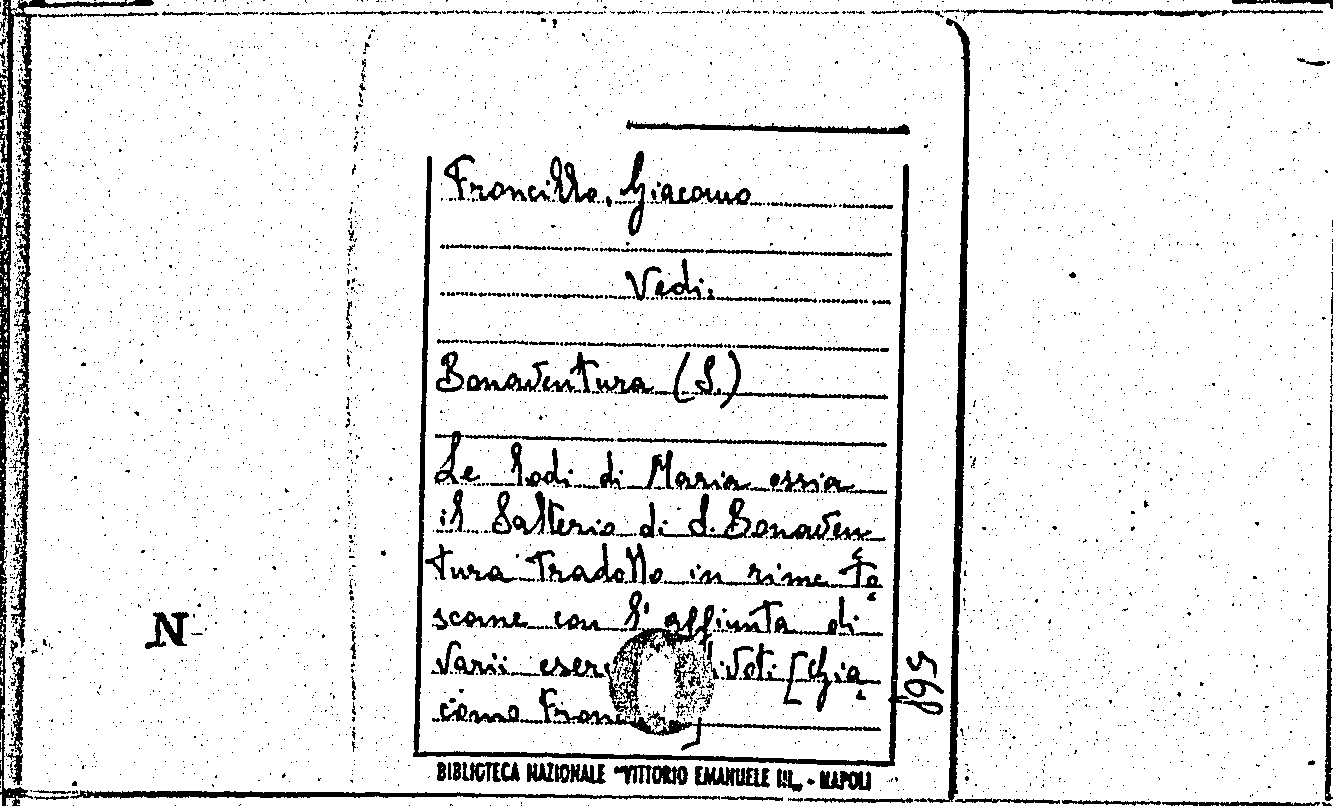 Francillo, Giacomo
Vedi:
Bonaventura (S.)
Le lodi di Maria ossia
il Salterio di S. Bonaven
tura tradotto in rime to
scane con l'aggiunta di
varii divoti [Gia
como
568
N
BIBLIOTECA NAZIONALE "VITTORIO EMANUELE III„ - NAPOLI